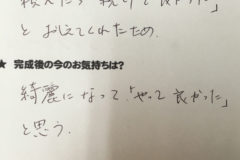 と おしえてくれたため.
★ 完成後の今のお気持ちは?
綺麗になって.「やって 良かった」
と思う.